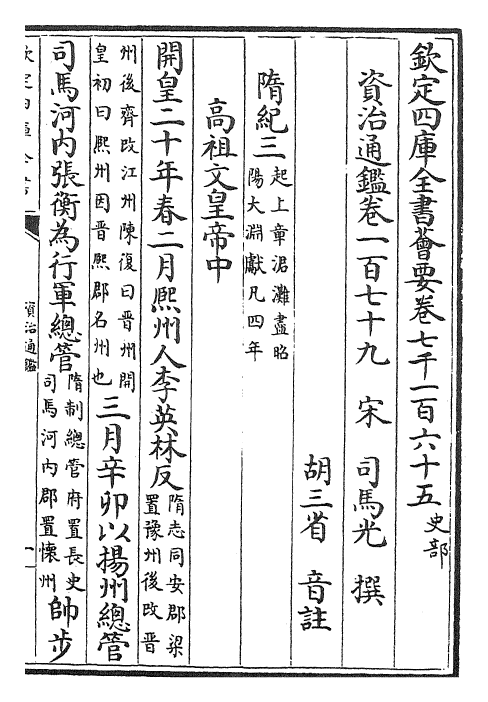 欽定四庫全書薈要卷七千一百六十五 史部
資治通鑑卷一百七十九 宋 司馬光 撰
胡三省 音註
隋紀三 起上章涒灘盡昭
陽大淵獻凡四年
高祖文皇帝中
開皇二十年春二月熈州人李英林反 隋志同安郡梁
置豫州後改晉
州後齊改江州陳復曰晉州開
皇初曰熈州因晉熈郡名州也 三月辛卯以揚州總管
司馬河内張衡為行軍總管 隋制總管府置長史
司馬河内郡置懷州 帥步
資治通鑑
一